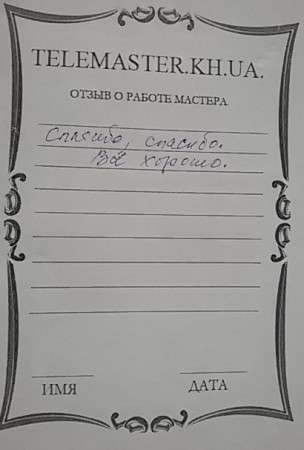 TELEMASTER.KH.UA.
ОТЗЫВ О РАБОТЕ МАСТЕРА
Спасибо, спасибо.
Всё хорошо.
ИМЯ ДАТА